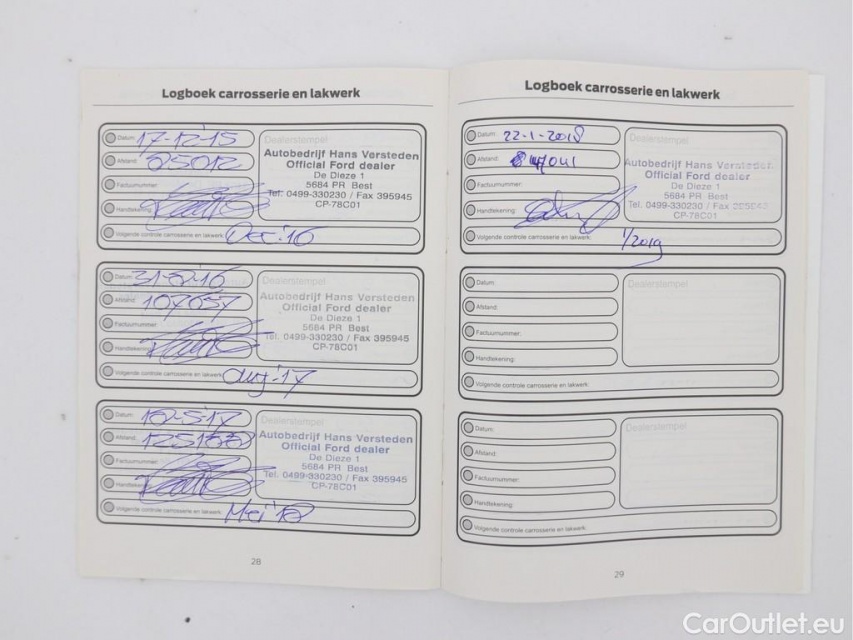 Logboek carrosserie en lakwerk
Datum: 17-12-15
Afstand:
Factuurnummer:
Handtekening:
Volgende controle carrosserie en lakwerk: Dec '16
Dealerstempel
Autobedrijf Hans Versteden
Official Ford dealer
De Dieze 1
5684 PR Best
Tel. 0499-330230 / Fax 395945
CP-78C01
Datum:
Afstand:
Factuurnummer:
Handtekening:
Volgende controle carrosserie en lakwerk: aug '17
Dealerstempel
Autobedrijf Hans Versteden
Official Ford dealer
De Dieze 1
5684 PR Best
Tel. 0499-330230 / Fax 395945
CP-78C01
Datum:
Afstand:
Factuurnummer:
Handtekening:
Volgende controle carrosserie en lakwerk: Mei '18
Dealerstempel
Autobedrijf Hans Versteden
Official Ford dealer
De Dieze 1
5684 PR Best
Tel. 0499-330230 / Fax 395945
CP-78C01
28
Logboek carrosserie en lakwerk
Datum: 22-1-2018
Afstand:
Factuurnummer:
Handtekening:
Volgende controle carrosserie en lakwerk: 1/2019
Dealerstempel
Autobedrijf Hans Versteden
Official Ford dealer
De Dieze 1
5684 PR Best
Tel. 0499-330230 / Fax 395945
CP-78C01
Datum:
Afstand:
Factuurnummer:
Handtekening:
Volgende controle carrosserie en lakwerk:
Dealerstempel
Datum:
Afstand:
Factuurnummer:
Handtekening:
Volgende controle carrosserie en lakwerk:
Dealerstempel
29
CarOutlet.eu